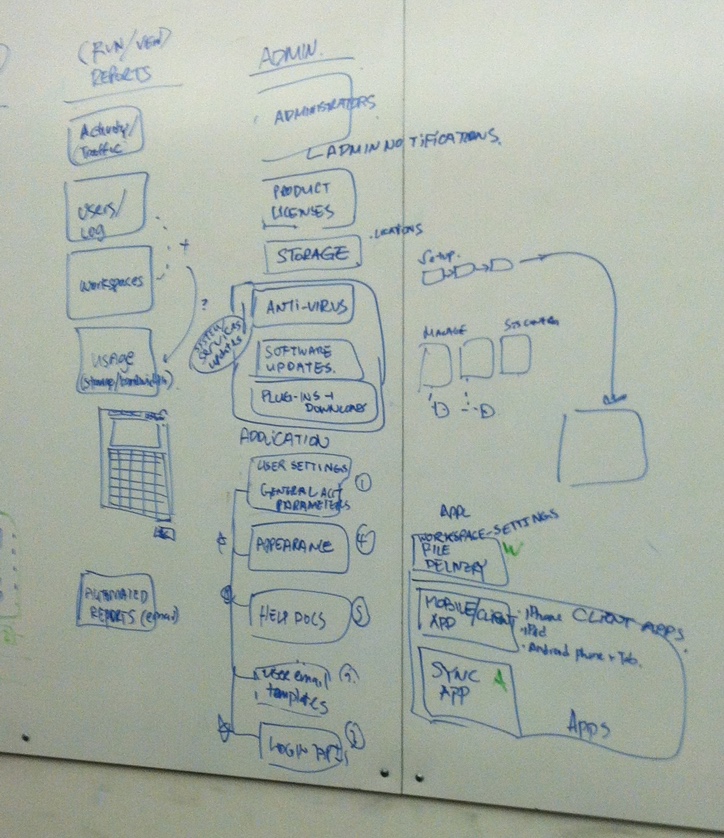 (RUN/VIEW)
REPORTS
Activity/
Traffic
Users/
Log
+
Workspaces
?
USAGE
(storage/bandwidth)
AUTOMATED
REPORTS (email)
ADMIN.
ADMINISTRATORS
ADMIN NOTIFICATIONS.
PRODUCT
LICENSES
STORAGE
ANTI-VIRUS
SYSTEM/
SERVICES
updates
SOFTWARE
UPDATES.
PLUG-INS +
DOWNLOADS
APPLICATION
USER SETTINGS
GENERAL ACCT
PARAMETERS
①
APPEARANCE
④
HELP DOCS
⑤
USER email
templates
LOGIN
Setup.
MANAGE
APPL
WORKSPACE-SETTINGS
FILE
DELIVERY
W
MOBILE/CLIENT
APP
iPhone
iPad
Android phone + Tab.
CLIENT APPS.
SYNC
APP
A
APPS